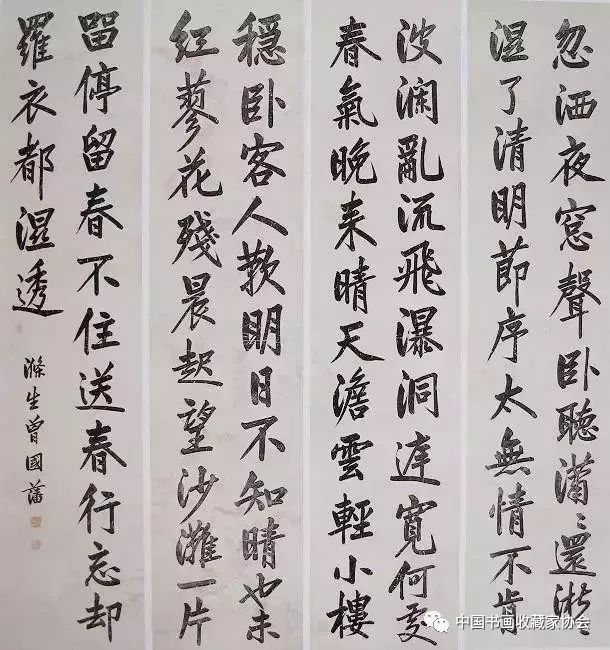 忽洒夜窓聲卧聽瀟〻還淅〻
湿了清明節序太無情不肯
波澜亂流飛瀑洞庭寬何處
春氣晚来晴天澹雲輕小樓
穩卧客人歎明日不知晴也未
红蓼花殘晨起望沙灘一片
留停留春不住送春行忘却
羅衣都湿透
滌生曾國藩
中国书画收藏家协会